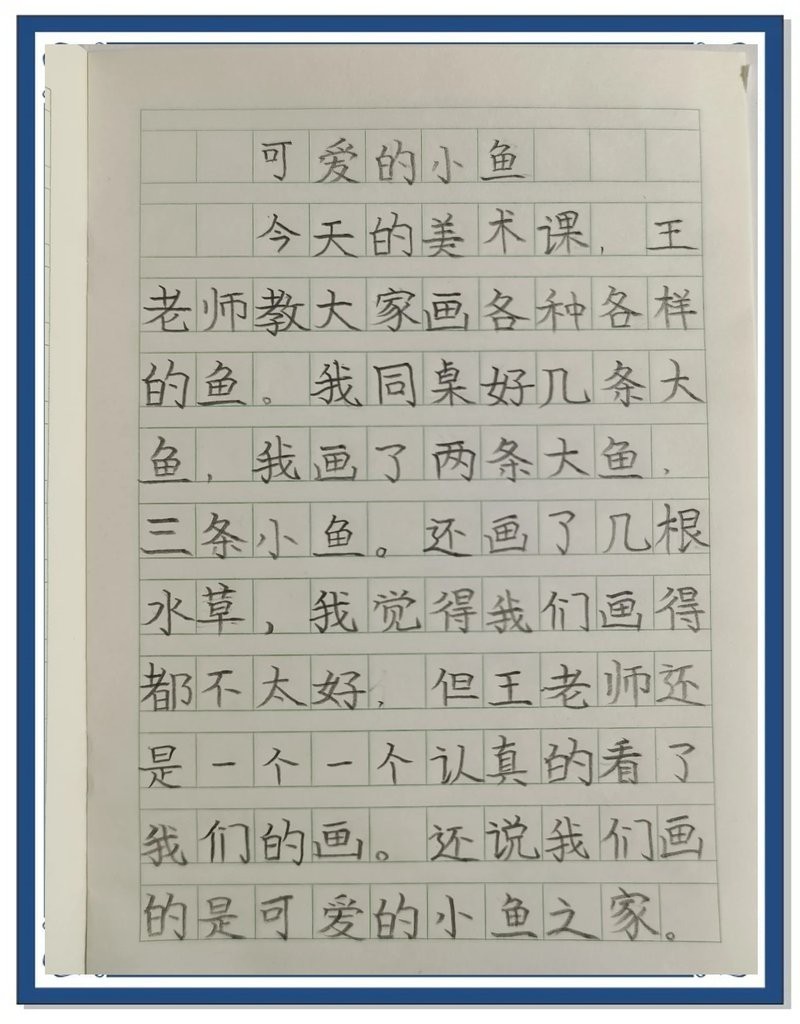 可爱的小鱼
今天的美术课，王
老师教大家画各种各样
的鱼。我同桌好几条大
鱼，我画了两条大鱼，
三条小鱼。还画了几根
水草，我觉得我们画得
都不太好，但王老师还
是一个一个认真的看了
我们的画。还说我们画
的是可爱的小鱼之家。